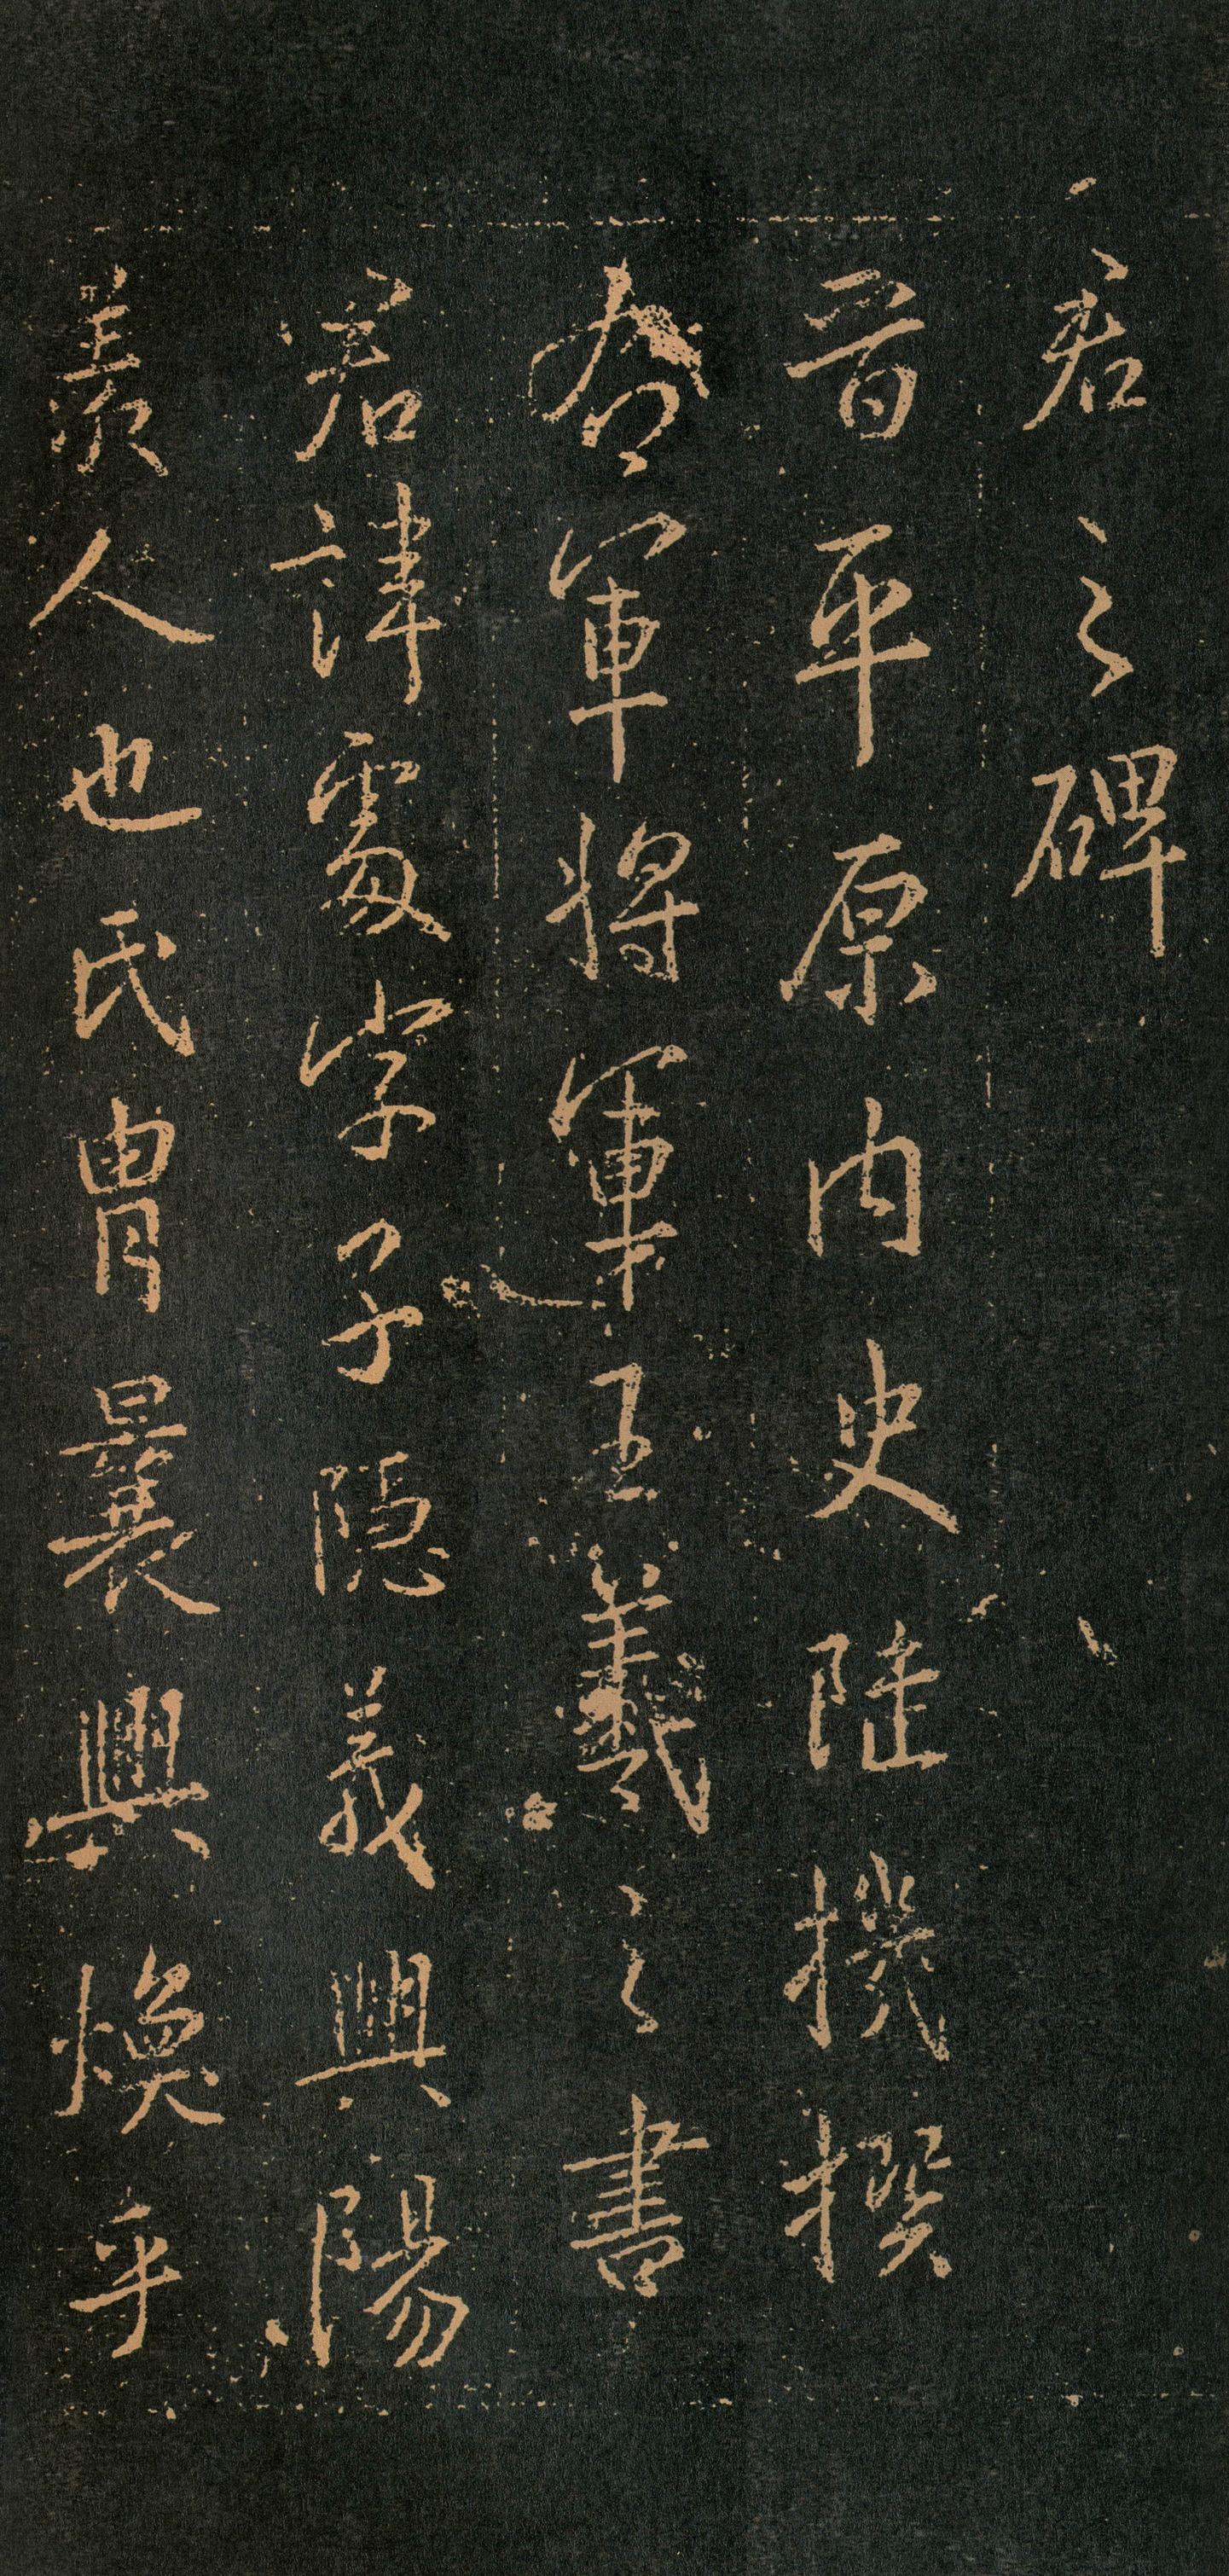 君之碑
晋平原内史陸機撰
右軍將軍王羲之書
君諱處字子隱義興陽
羨人也氏胄曩興煥乎